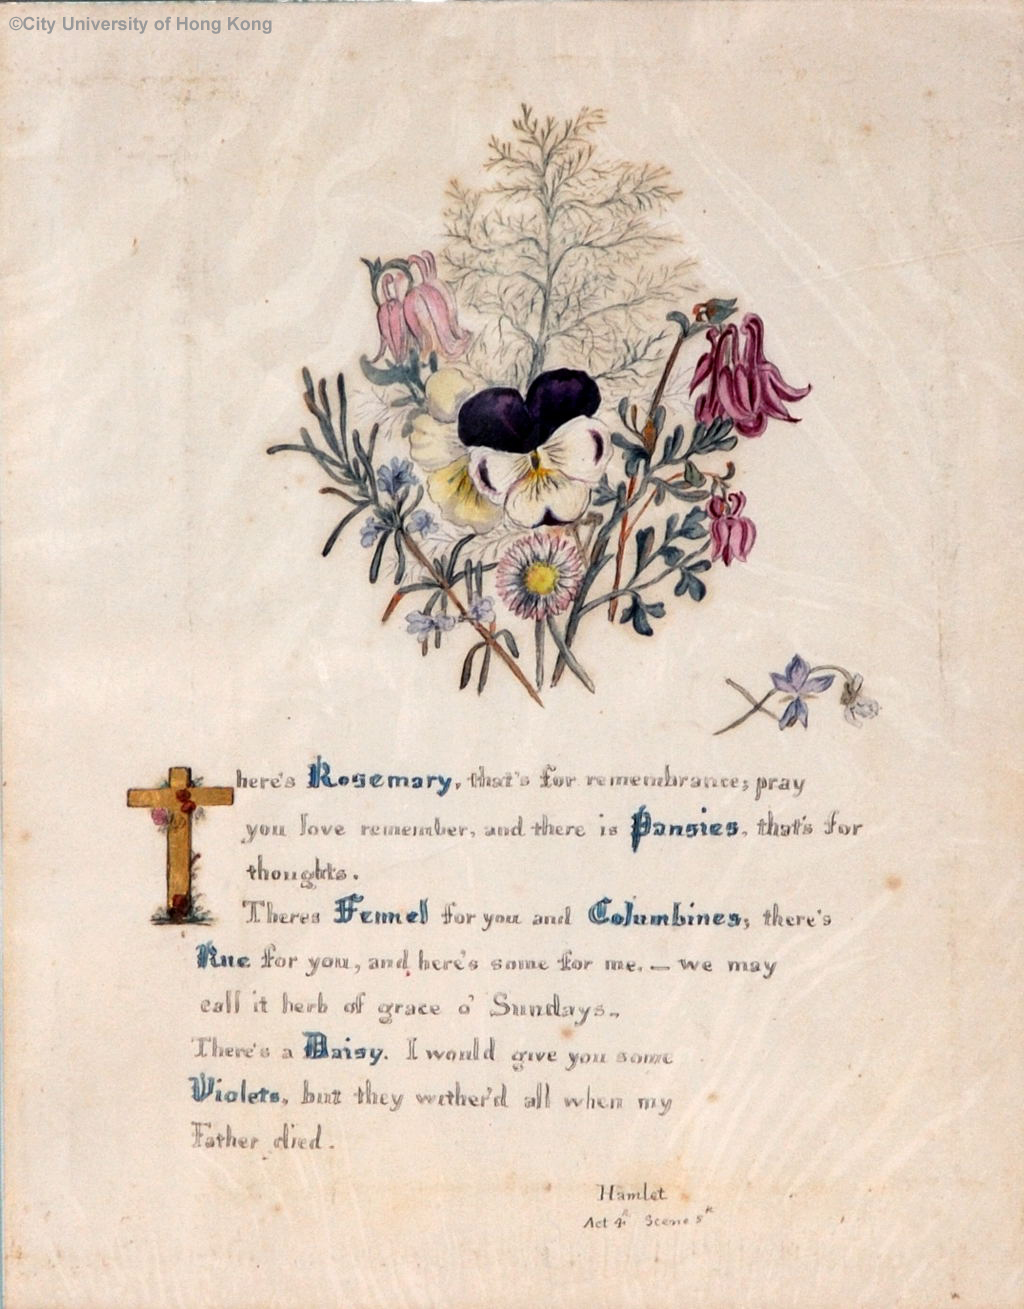 ©City University of Hong Kong
There's Rosemary, that's for remembrance; pray
you love remember, and there is Pansies, that's for
thoughts.
Theres Fennel for you and Columbines; there's
Rue for you, and here's some for me. — we may
call it herb of grace o' Sundays..
There's a Daisy. I would give you some
Violets, but they wither'd all when my
Father died.
Hamlet
Act 4th Scene 5th